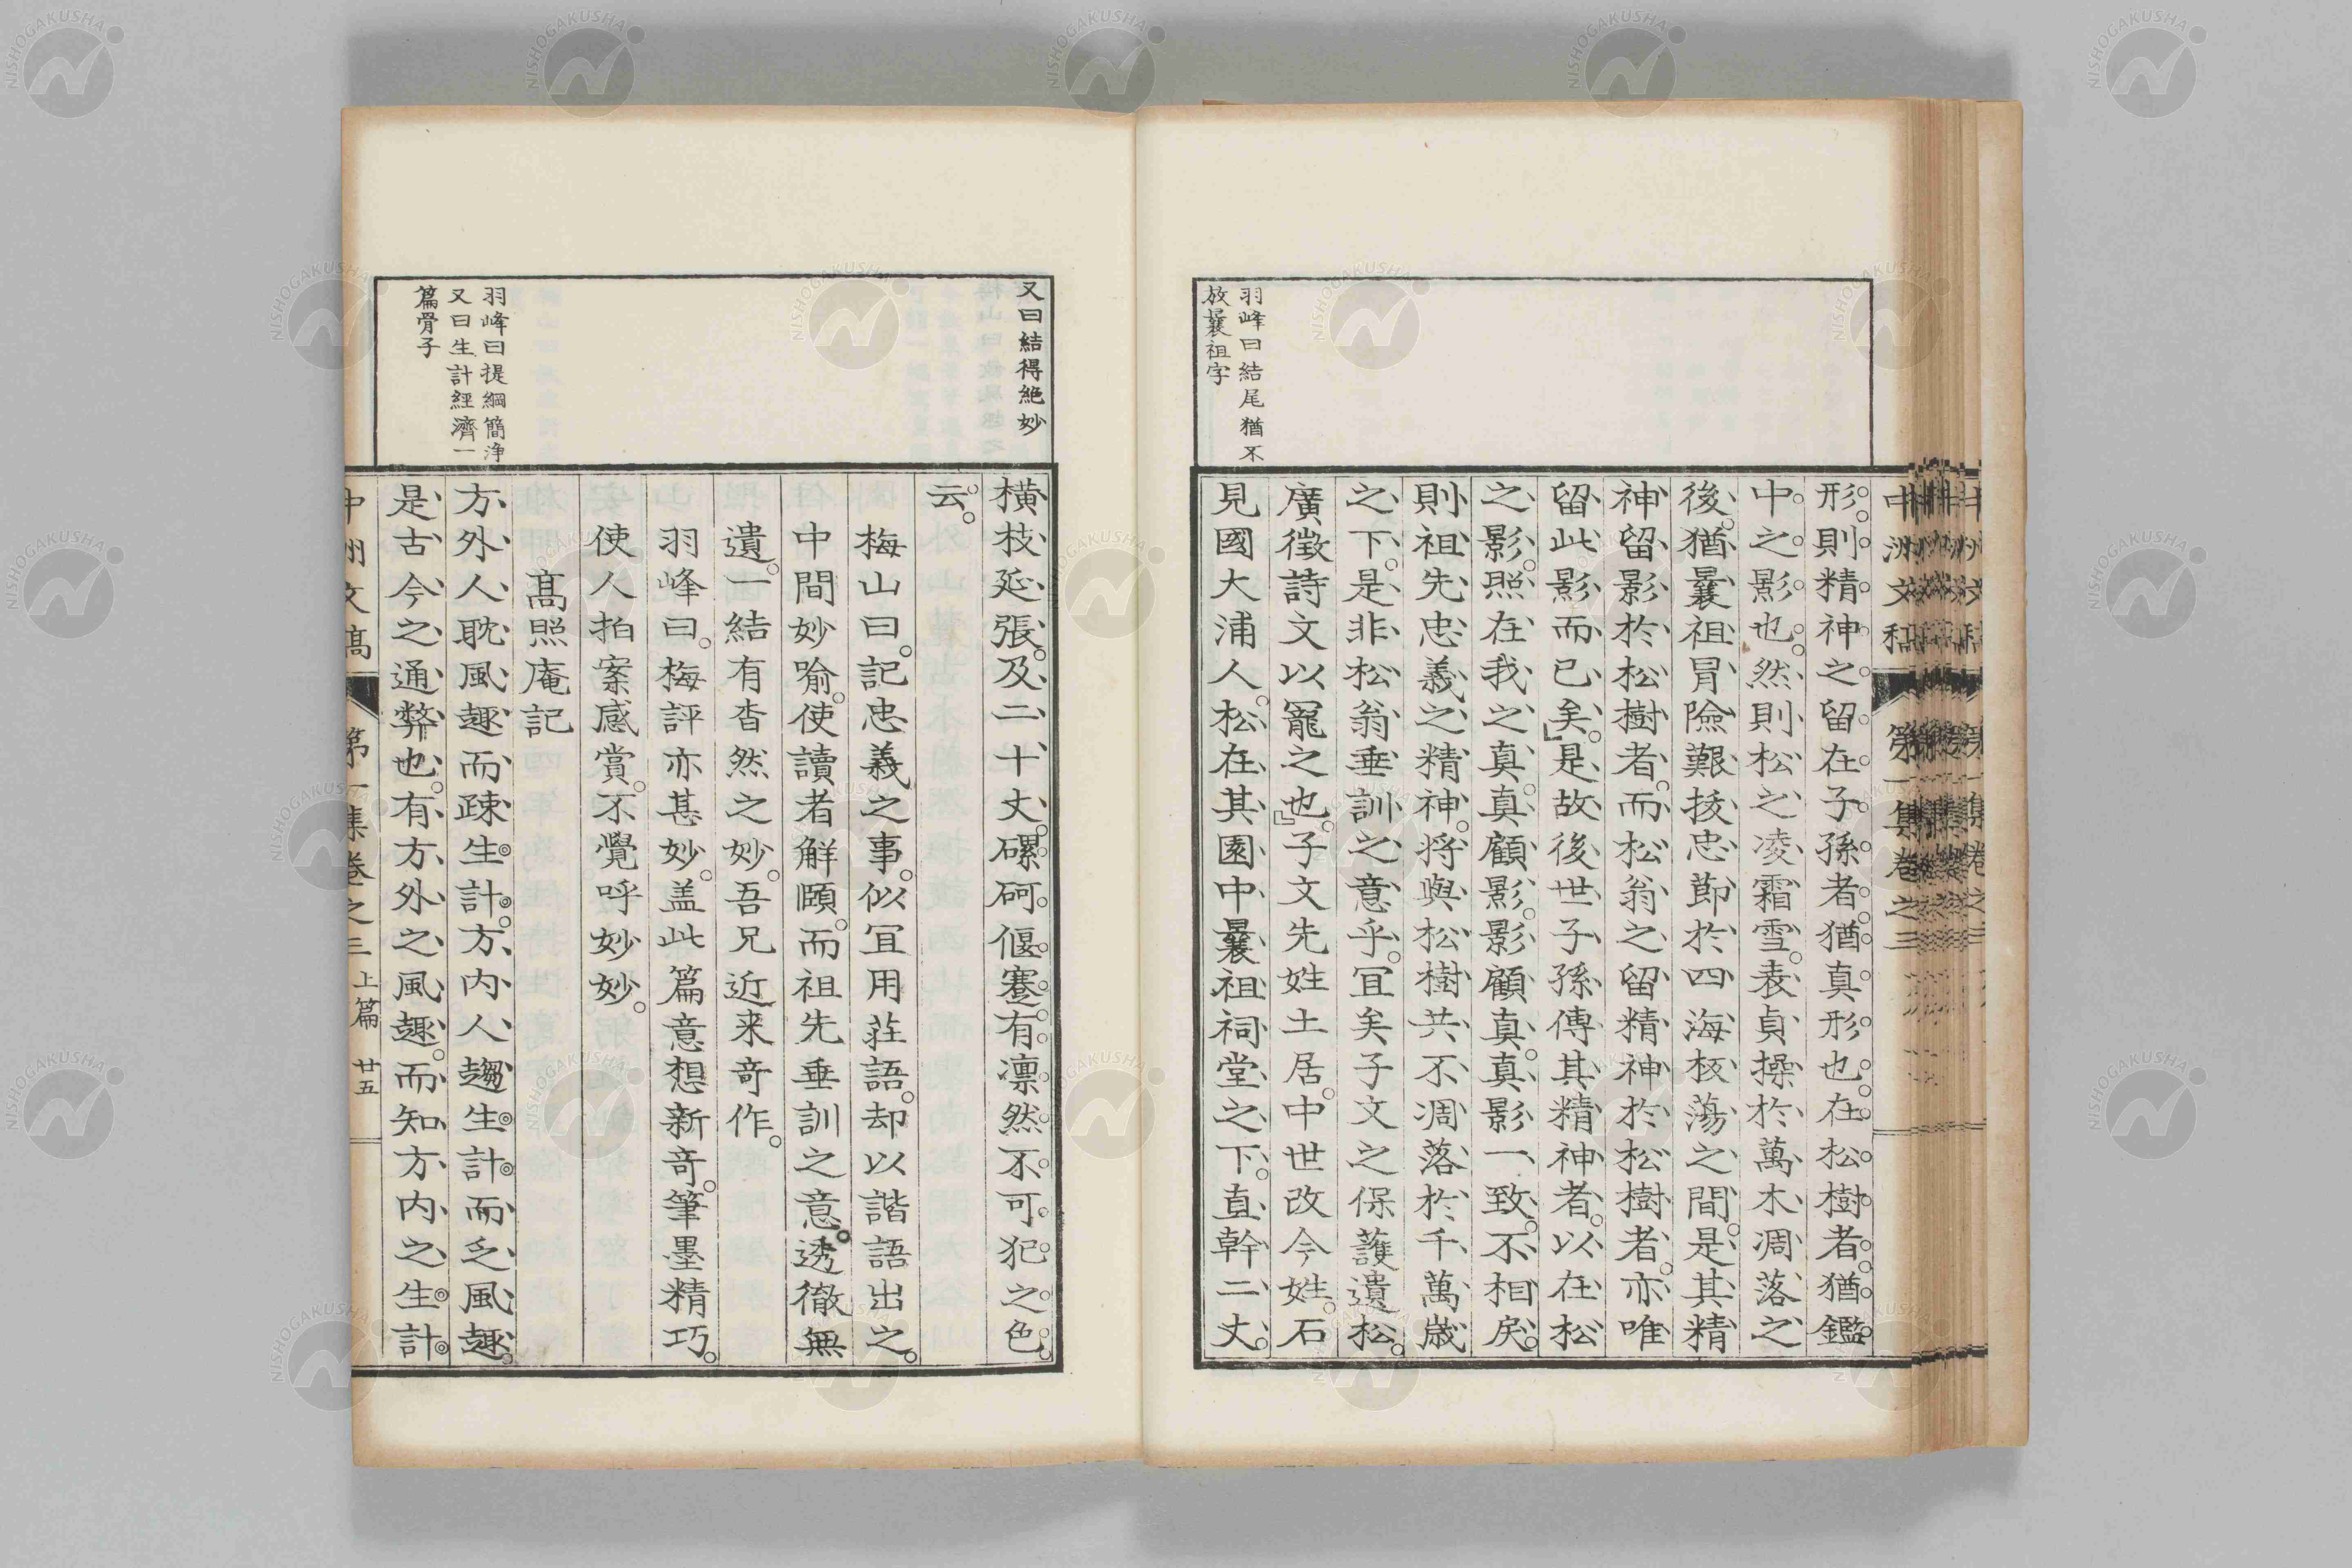 羽峰曰結尾猶不
放曩祖字
形則精神之留在子孫者猶真形也在松樹者猶鑑
中之影也然則松之凌霜雪表貞操於萬木凋落之
後猶曩祖冒險艱抜忠節於四海板蕩之間是其精
神留影於松樹者而松翁之留精神於松樹者亦唯
留此影而已矣」是故後世子孫傳其精神者以在松
之影照在我之真真顧影影顧真真影一致不相戾
則祖先忠義之精神將與松樹共不凋落於千萬歲
之下是非松翁垂訓之意乎冝矣子文之保護遺松
廣徴詩文以寵之也」子文先姓土居中世改今姓石
見國大浦人松在其園中曩祖祠堂之下直幹二丈
中洲文稿 第一集卷之三
又曰結得絶妙
羽峰曰提綱簡浄
又曰生計經濟一
篇骨子
橫枝延張及二十丈磥砢偃蹇有凛然不可犯之色
云
梅山曰記忠義之事似冝用莊語却以諧語出之
中間妙喻使讀者解頤而祖先垂訓之意透徹無
遺一結有杳然之妙吾兄近来竒作
羽峰曰梅評亦甚妙盖此篇意想新竒筆墨精巧
使人拍案感賞不覺呼妙妙
髙照庵記
方外人耽風趣而疎生計方内人趨生計而乏風趣
是古今之通弊也有方外之風趣而知方内之生計
中洲文稿 第一集卷之三 上篇 廿五